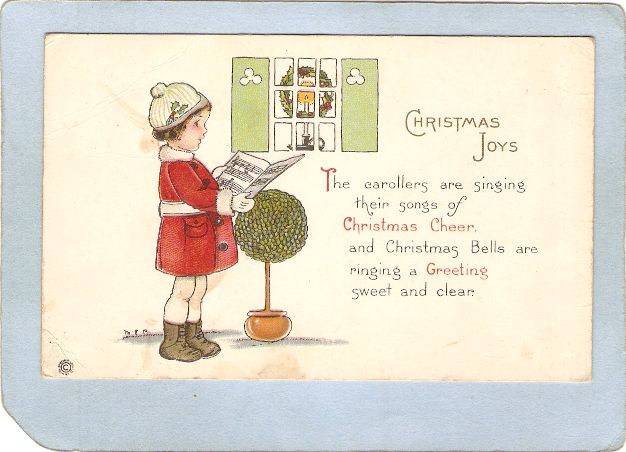 CHRISTMAS
JOYS
The carollers are singing
their songs of
Christmas Cheer,
and Christmas Bells are
ringing a Greeting
sweet and clear.
M.E.P.
©